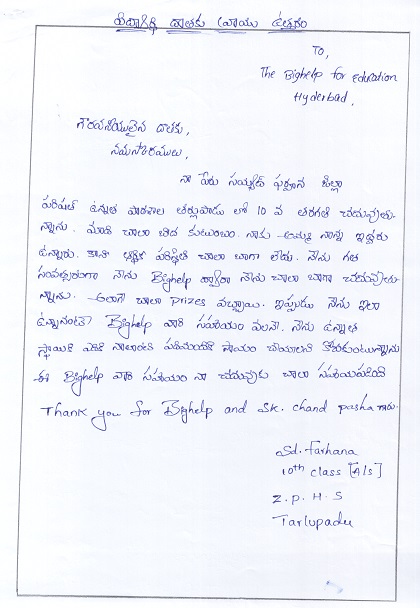 విద్యార్థి దాతకు వ్రాయు ఉత్తరం
To,
The Bighelp for education
Hyderbad.
గౌరవనీయులైన దాతకు,
నమస్కారములు,
నా పేరు సయ్యద్ ఫర్హాన జిల్లా
పరిషత్ ఉన్నత పాఠశాల తర్లుపాడు లో 10 వ తరగతి చదువుతు
న్నాను. మాది చాలా బీద కుటుంబం. నాకు అమ్మ నాన్న ఇద్దరు
ఉన్నారు. కాని ఆర్థిక పరిస్థితి చాలా బాగా లేదు. నేను గత
సంవత్సరంగా నేను Bighelp ద్వారా నేను చాలా బాగా చదువుతు
న్నాను. అలాగే చాలా Prizes వచ్చాయి. ఇప్పుడు నేను ఇలా
ఉన్నానంటే Bighelp వారి సహాయం వలనే. నేను ఉన్నత
స్థాయికి ఎదిగి నాలాంటి పదిమందికి సాయం చేయాలని కోరుకుంటున్నాను
ఈ Bighelp వారి సహాయం నా చదువుకు చాలా సహాయపడింది
Thank you for Bighelp and Sk. chand pasha గారు.
Sd. Farhana
10th class [A/s]
Z. P. H. S
Tarlupadu